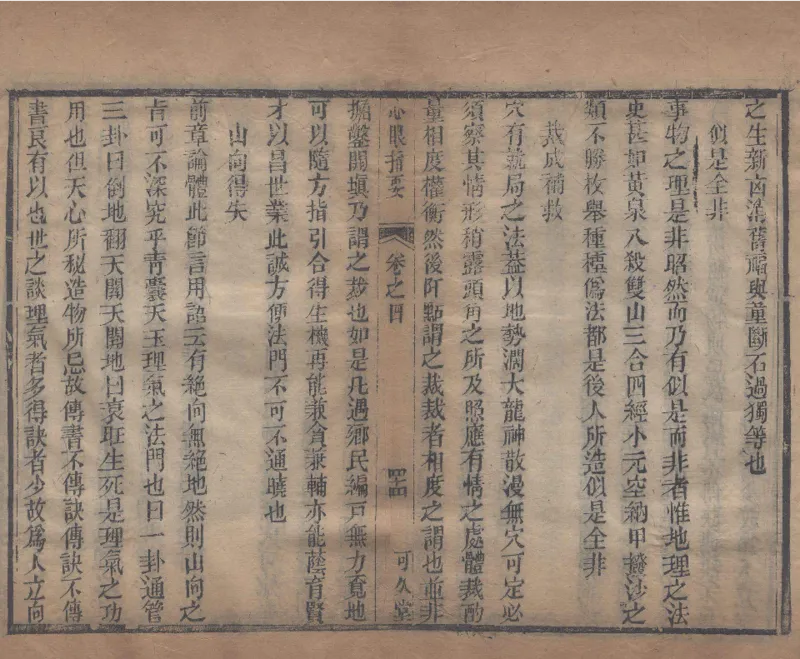 之生新凶消舊禍與童斷石過獨等也
似是全非
事物之理是非昭然而乃有似是而非者惟地理之法
更甚如黃泉八殺雙山三合四經小元空納甲撥沙之
類不勝枚舉種種偽法都是後人所造似是全非
裁成補救
穴有就局之法葢以地勢濶大龍神散漫無穴可定必
須察其情形稍露頭角之所及照應有情之處體裁酌
量相度權衡然後阡點謂之裁裁者相度之謂也並非
心眼指要
卷之四
可久堂
掘鑿開塡乃謂之裁也如是凡遇鄉民編戸無力覔地
可以隨方指引合得生機再能兼貪兼輔亦能蔭育賢
才以昌世業此誠方便法門不可不通曉也
山向得失
前章論體此節言用語云有絶向無絶地然則山向之
吉可不深究乎青囊天玉理氣之法門也曰一卦通管
三卦曰倒地翻天開天闢地曰衰旺生死是理氣之功
用也但天心所秘造物所忌故傳書不傳訣傳訣不傳
書良有以也世之談理氣者多得訣者少故爲人立向